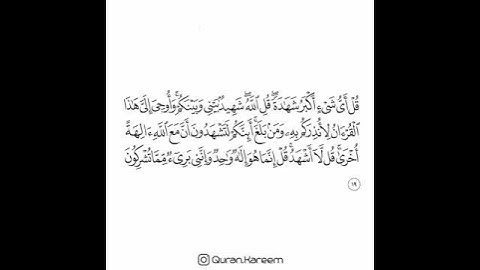 قُلْ أَيُّ شَىْءٍ أَكْبَرُ شَهَٰدَةً ۖ قُلِ ٱللَّهُ ۖ شَهِيدٌۢ بَيْنِى وَبَيْنَكُمْ ۚ وَأُوحِىَ إِلَىَّ هَٰذَا
ٱلْقُرْءَانُ لِأُنذِرَكُم بِهِۦ وَمَنۢ بَلَغَ ۚ أَئِنَّكُمْ لَتَشْهَدُونَ أَنَّ مَعَ ٱللَّهِ ءَالِهَةً
أُخْرَىٰ ۚ قُل لَّآ أَشْهَدُ ۚ قُلْ إِنَّمَا هُوَ إِلَٰهٌ وَٰحِدٌ وَإِنَّنِى بَرِىٓءٌ مِّمَّا تُشْرِكُونَ
١٩
Quran.Kareem